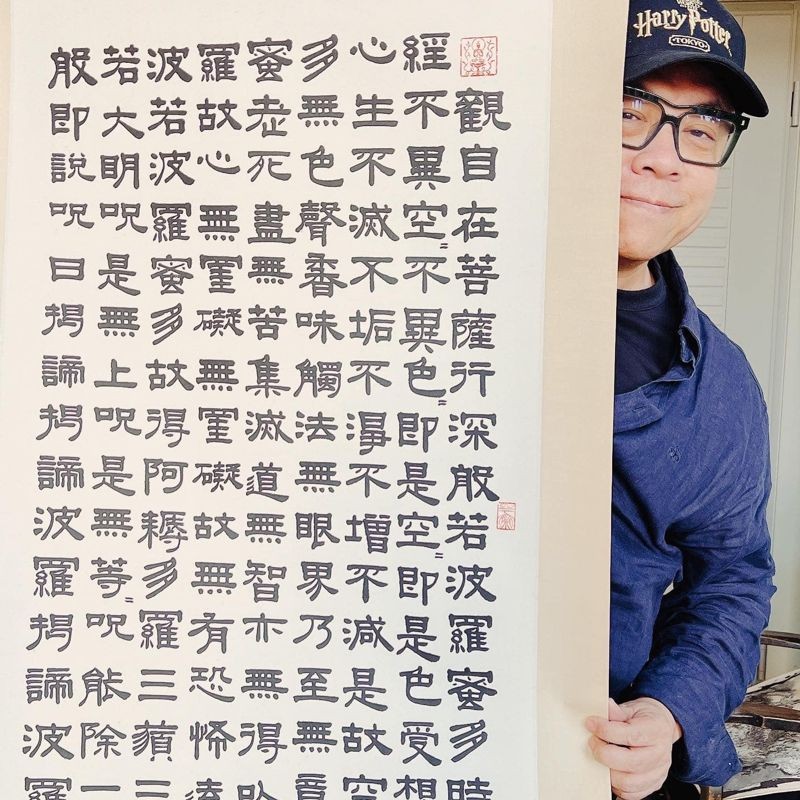 Harry Potter
TOKYO
般若波羅蜜多心經
觀自在菩薩行深般若波羅蜜多時
不異空〻不異色〻即是空〻即是色受想
生不滅不垢不淨不增不減是故空
無色聲香味觸法無眼界乃至無意
老死盡無苦集滅道無智亦無得以
故心無罣礙無罣礙故無有恐怖遠
若波羅蜜多故得阿耨多羅三藐三
大明呪是無上呪是無等〻呪能除一
即說呪曰揭諦揭諦波羅揭諦波羅